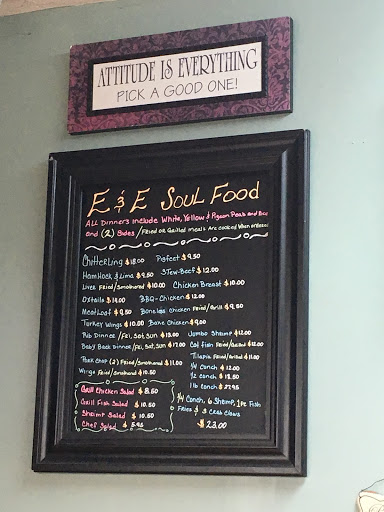 ATTITUDE IS EVERYTHING
PICK A GOOD ONE!
E & E SOUL FOOD
ALL Dinners Include White, Yellow & Pigeon Peas and Rice
and (2) Sides / Fried or Grilled meals are cooked When ordered!
Chitterling $18.00
Pigfeet $9.50
Ham Hock & Lima $9.50
STew-Beef $12.00
Liver Fried/Smothered $10.00
Chicken Breast $10.00
Oxtails $14.00
BBQ-Chicken $12.00
Meatloaf $9.50
Boneless Chicken Fried/Grill $9.50
Turkey Wings $10.00
Bake Chicken $9.00
Rib Dinner/Fri, Sat, Sun $13.00
Jumbo Shrimp $12.00
Baby Back Dinner/Fri, Sat, Sun $17.00
Cat Fish Fried/Grilled $12.00
Tilapia Fried/Grilled $11.00
Pork Chop (2) Fried/Smothered $11.00
1/4 Conch $12.00
Wings Fried/Smothered $10.50
1/2 Conch $18.50
1 lb Conch $27.95
Grill Chicken Salad $8.50
Grill Fish Salad $10.50
Shrimp Salad $10.50
Chef Salad $5.95
1/4 Conch, 6 Shrimp, 1 pc Fish
Fries & 3 Crab Claws
$23.00